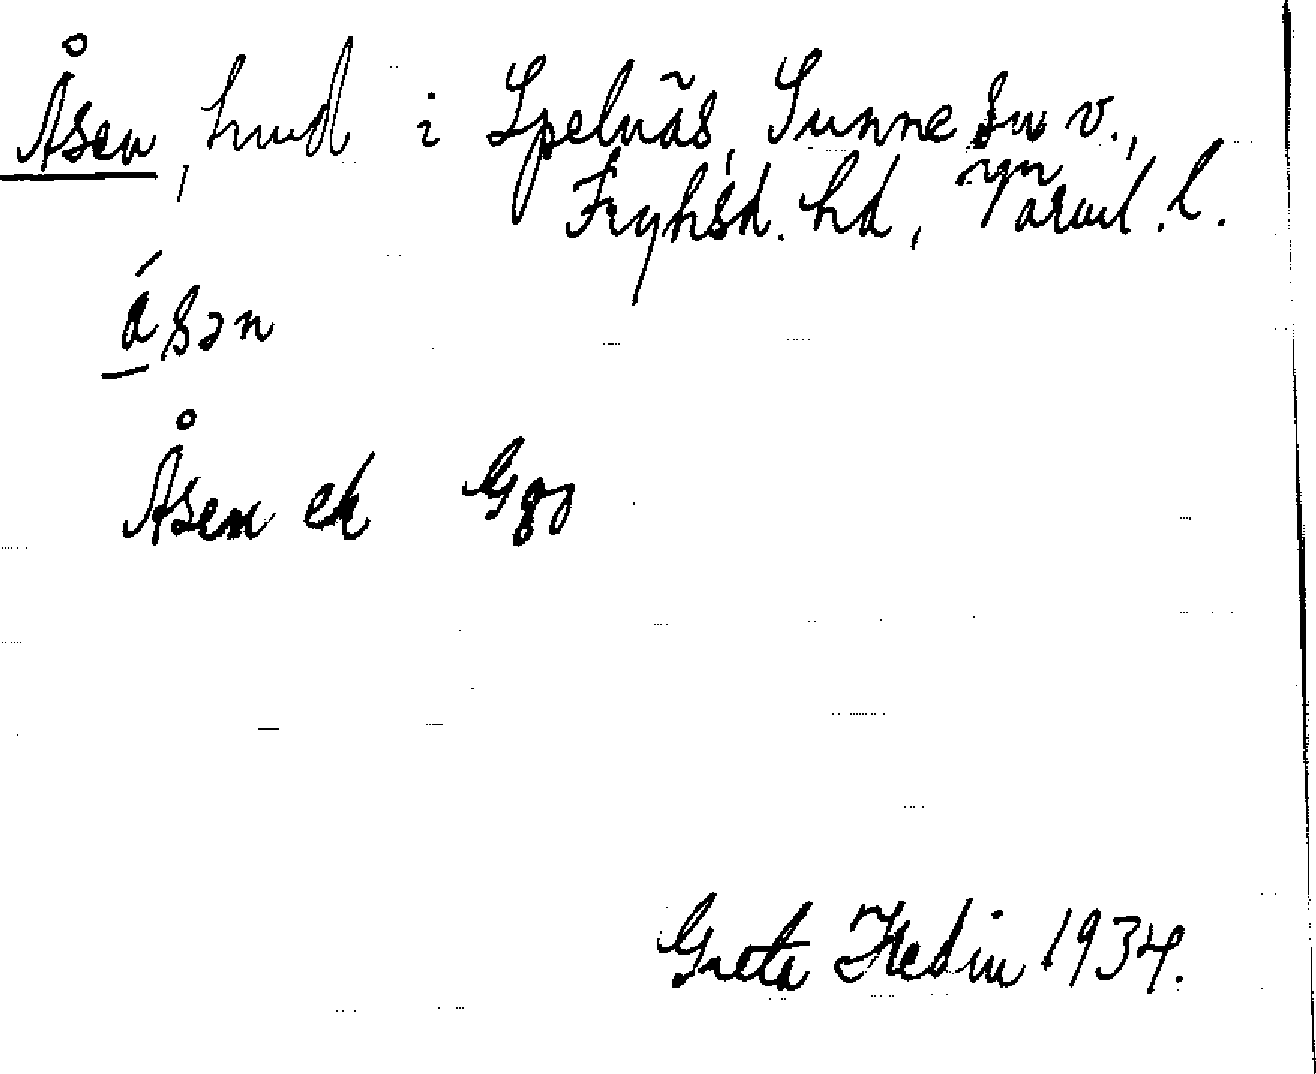 Åsen, hmd i Spelnäs, Sunne sn v.,
Fryksd. hd, Värml. l.
åsən
Åsen ek Ggo
Greta Hedin 1934.